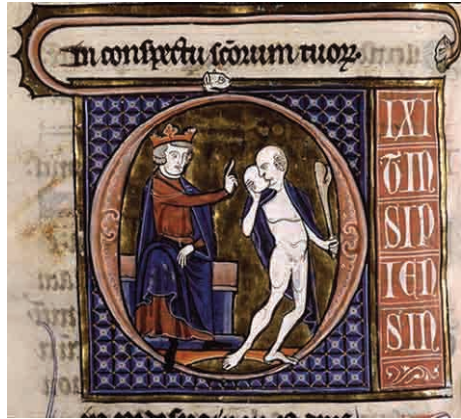 in conspectu sc̄orum tuoꝝ.
IXI
TIN
SIP
IEN
SIN